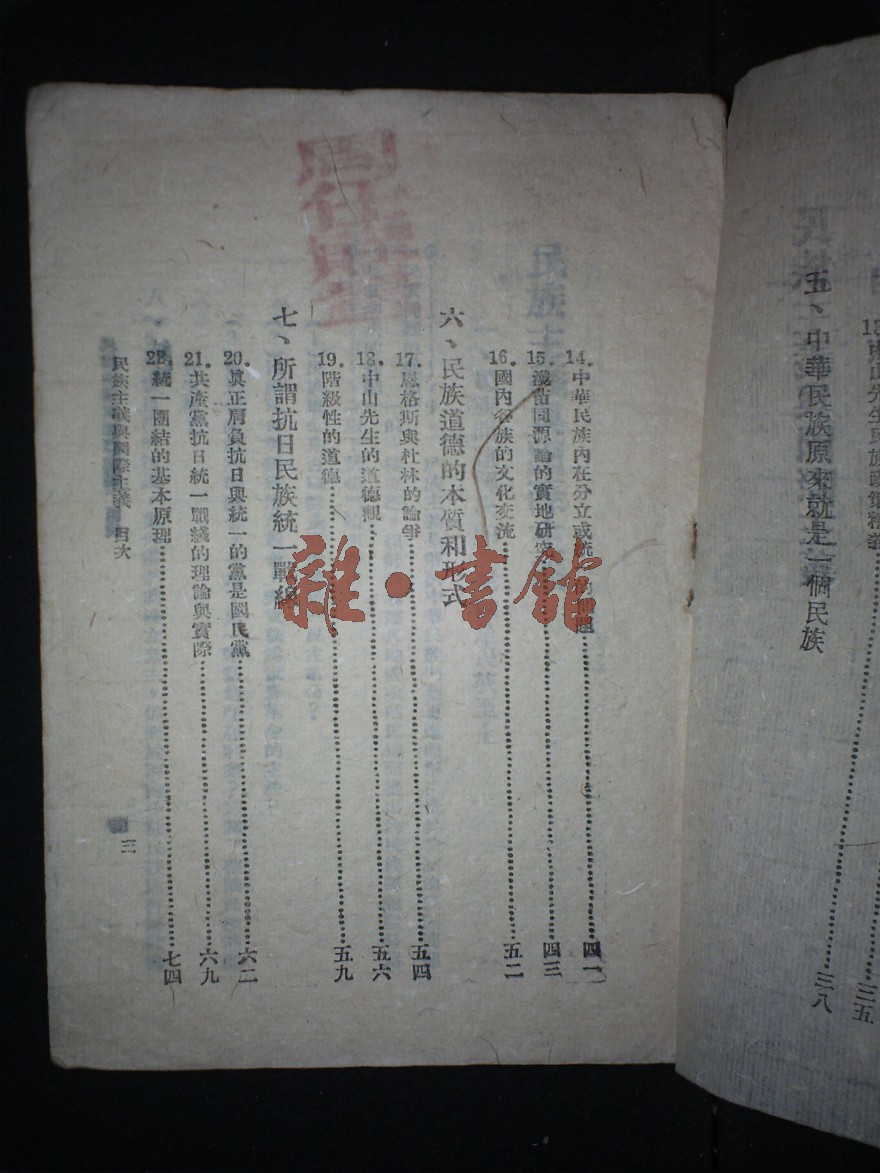 中山先生民族政策精義……三五
五、中華民族原來就是一個民族……三八
14.中華民族內在分立或統一的問題……四一
15.漢苗同源論的實地研究……四三
16.國內各族的文化交流……五二
六、民族道德的本質和形式
17.恩格斯與杜林的論爭……五四
18.中山先生的道德觀……五六
19.階級性的道德……五九
七、所謂抗日民族統一戰線
20.眞正肩負抗日與統一的黨是國民黨……六二
21.共產黨抗日統一戰綫的理論與實際……六九
22.統一團結的基本原理……七四
民族主義與國際主義 目次
三
雜·書館